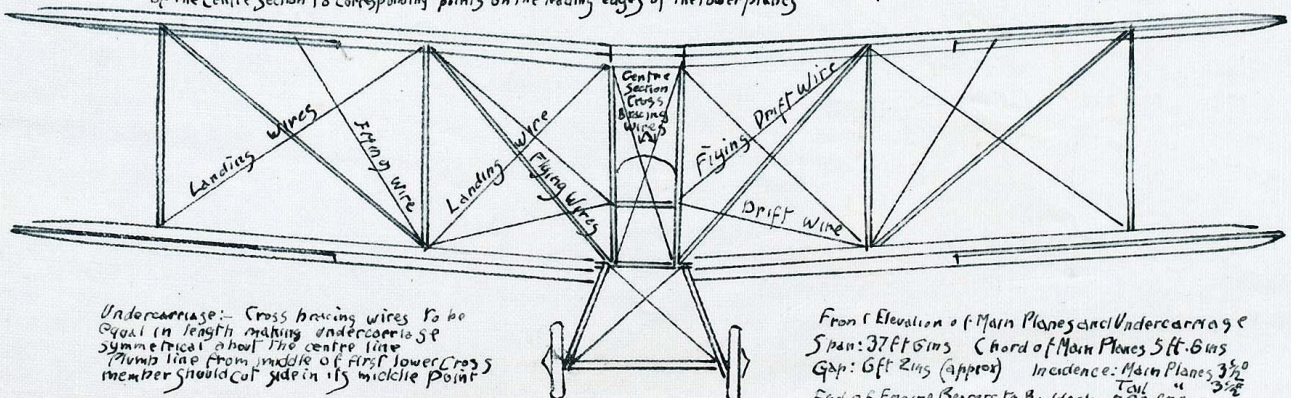 of the Centre Section to corresponding points on the leading edges of the lower planes
Centre
Section
Cross
Bracing
Wires
Landing Wires
Flying Wire
Landing Wire
Flying Wires
Flying Drift Wire
Drift Wire
Undercarriage:- Cross bracing wires to be
equal in length making undercarriage
symmetrical about the centre line
Plumb line from middle of first lower Cross
member should cut axle in its middle point
Front Elevation of Main Planes and Undercarriage
Span: 37ft 6ins Chord of Main Planes 5ft.6ins
Gap: 6ft 2ins (approx) Incidence: Main Planes 3½°
Tail " 3½°
End of Engine Bearers to